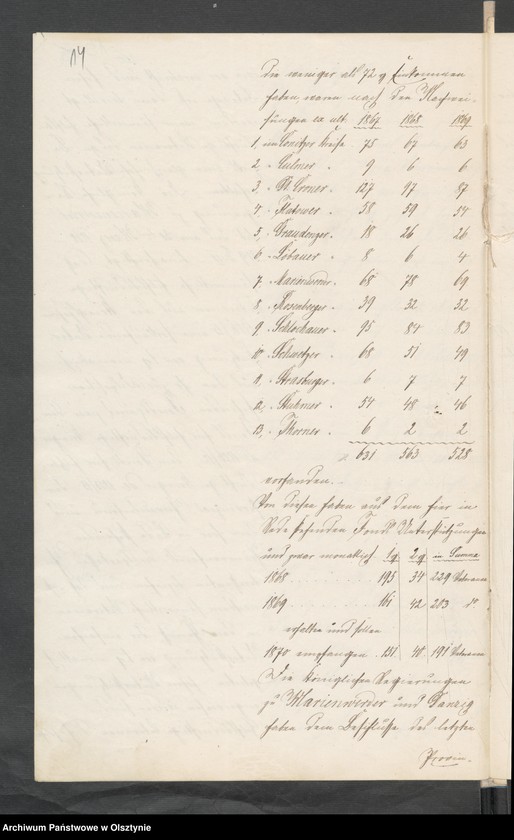 14
die weniger als 72 Einkommen
haben, waren nach den Nachwei-
sungen ca. ult. 1867 1868 1869
1, im Conitzer Kreise 75 67 63
2, " Culmer " 9 6 6
3, " Dt. Croner " 127 97 87
4, " Flatower " 58 59 54
5, " Graudenzer " 18 26 26
6, " Löbauer " 8 6 4
7, " Marienwerder " 68 78 69
8, " Rosenberger " 39 32 32
9, " Schlochauer " 95 84 83
10, " Schwetzer " 68 51 49
11, " Strasburger " 6 7 7
12, " Stuhmer " 54 48 46
13, " Thorner " 6 2 2
631 563 528
vorhanden.
Von diesen haben aus dem hier in
Rede stehenden Fonds Unterstützungen
und zwar monatlich 1 2 in Summa
1868 195 34 229 Veteranen
1869 161 42 203 do
erhalten und sollen
1870 empfangen 151 40 191 Veteranen
Die Königlichen Regierungen
zu Marienwerder und Danzig
haben dem Beschlusse des letzten
Provin-
Archiwum Państwowe w Olsztynie